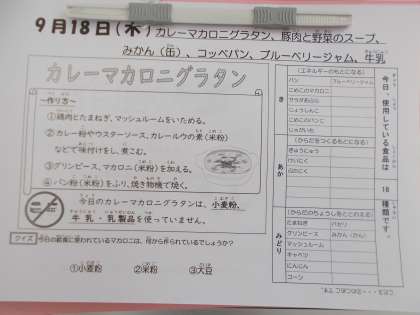 9月18日(木)カレーマカロニグラタン、豚肉と野菜のスープ、
みかん(缶)、コッペパン、ブルーベリージャム、牛乳
カレーマカロニグラタン
～作り方～
①鶏肉とたまねぎ、マッシュルームをいためる。
②カレー粉やウスターソース、カレールウの素(米粉)
などで味付けをし、煮こむ。
③グリンピース、マカロニ(米粉)を加える。
④パン粉(米粉)をふり、焼き物機で焼く。
今日のカレーマカロニグラタンは、小麦粉、
牛乳・乳製品を使っていません。
クイズ 今日の給食に使われているマカロニは、何から作られているでしょうか?
①小麦粉 ②米粉 ③大豆
(エネルギーのもとになる)
き
パン ブルーベリージャム
こめこのマカロニ
じょうしんこ
こめこのパンこ
じゃがいも
(からだをつくるもとになる)
あか
ぎゅうにゅう
けいにく
ぶたにく
(からだのちょうしをととのえる)
みどり
たまねぎ パセリ
グリンピース みかん(かん)
マッシュルーム
キャベツ
にんにん
コーン
今日、使用している食品は 18 種類です。